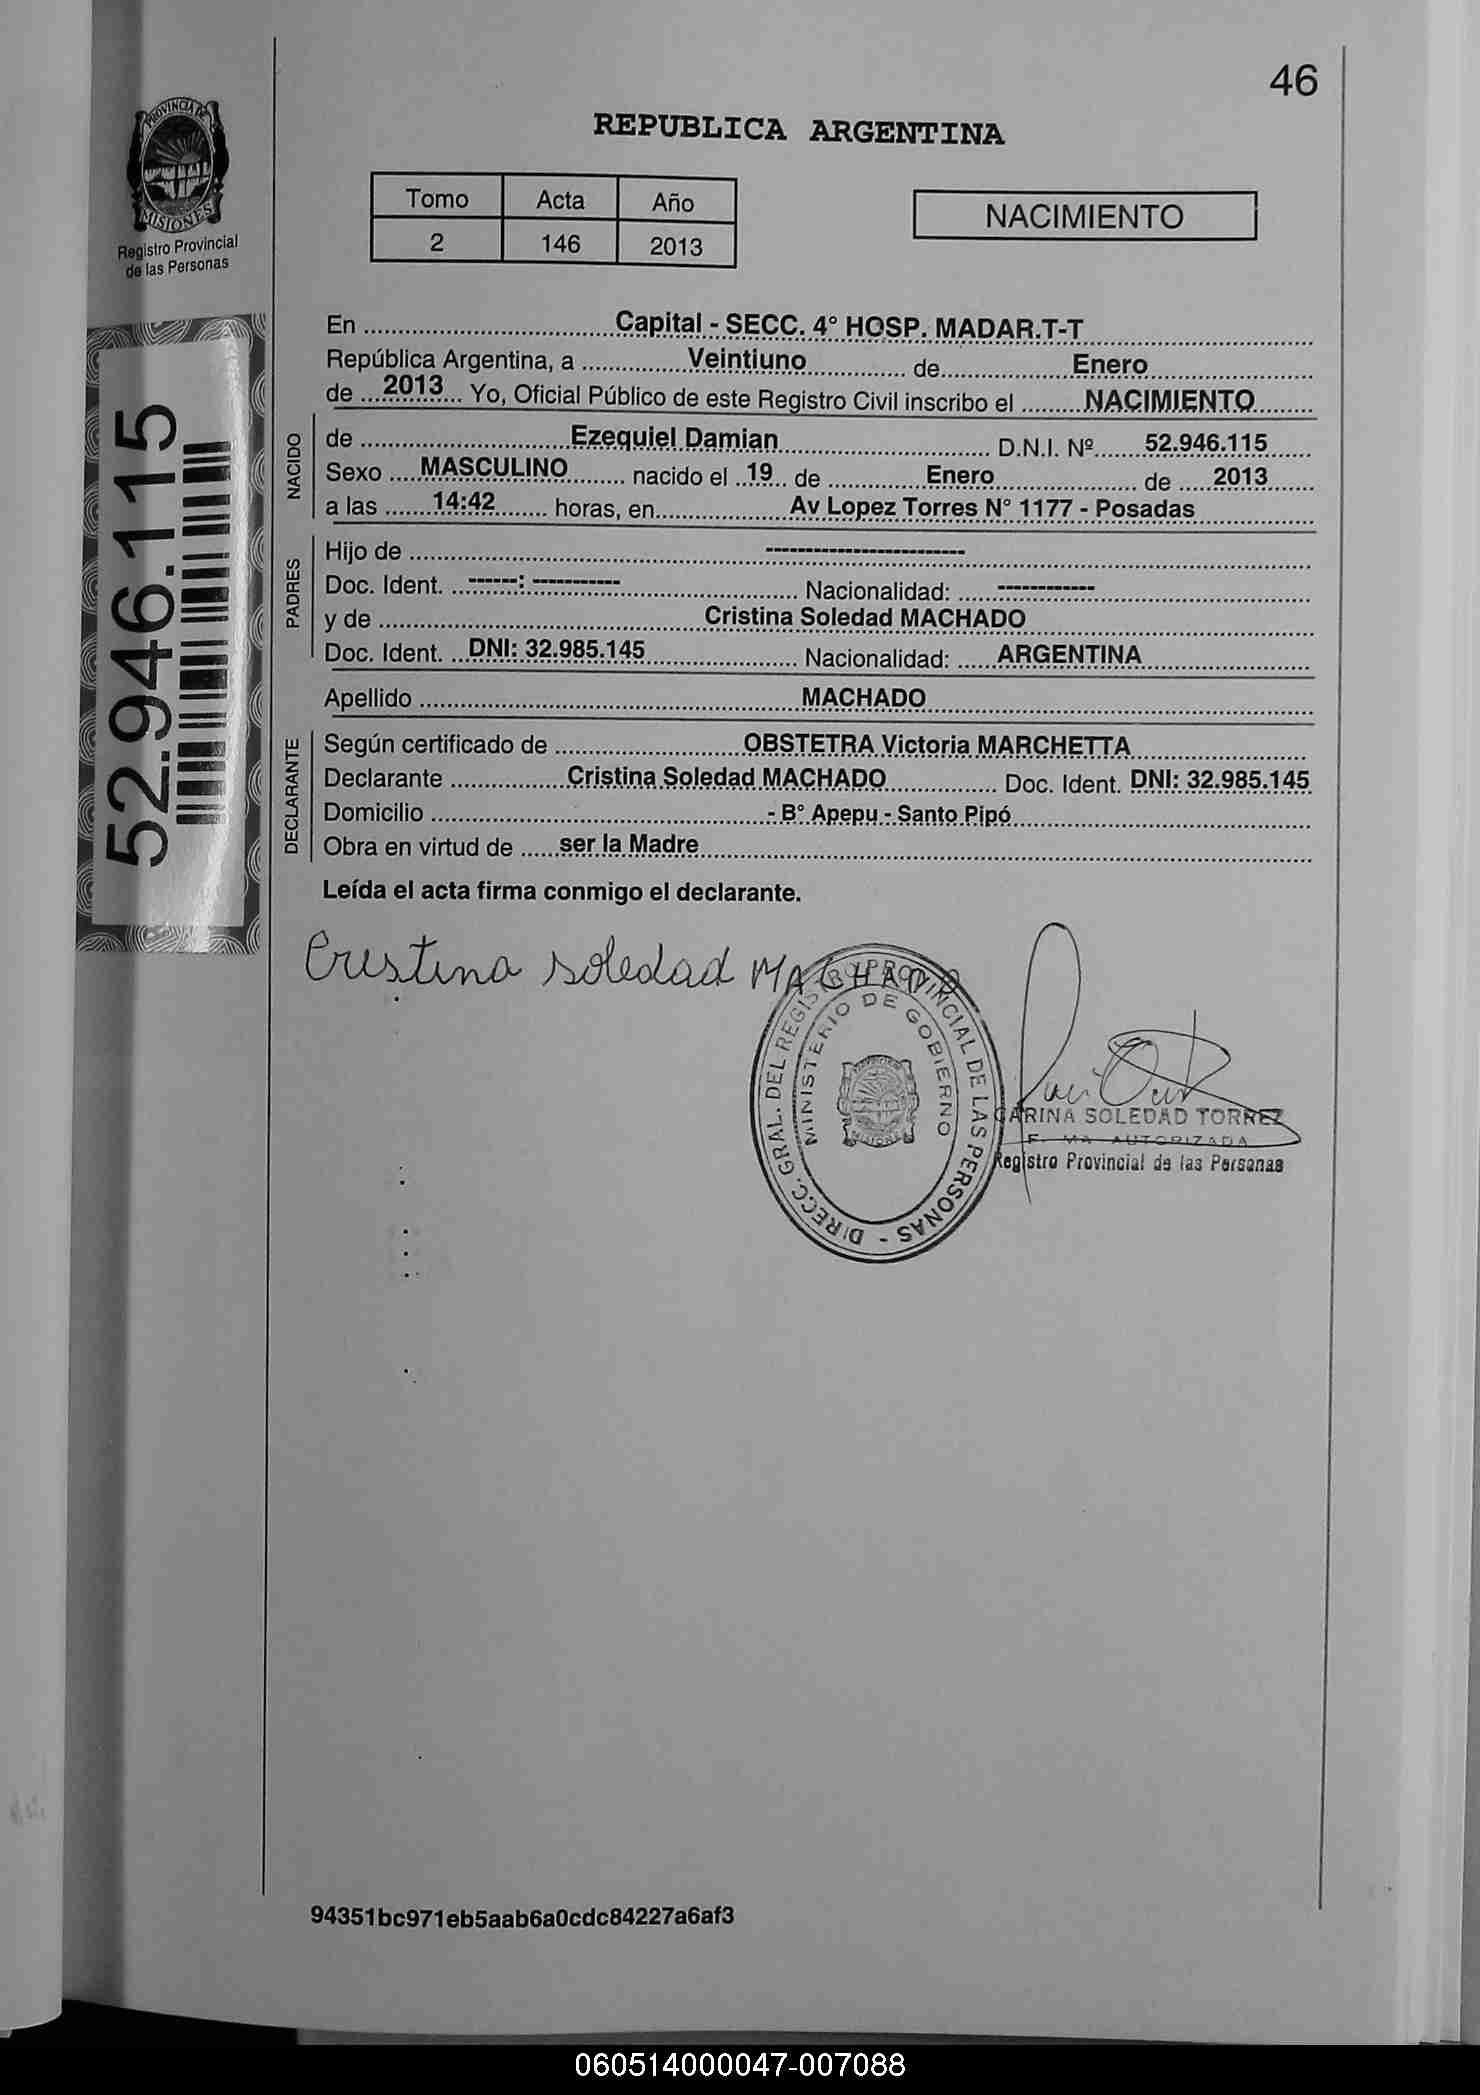 46
PROVINCIA DE
MISIONES
Registro Provincial
de las Personas
REPUBLICA ARGENTINA
Tomo Acta Año
2 146 2013
NACIMIENTO
52.946.115
En ........ Capital - SECC. 4° HOSP. MADAR.T-T ........
República Argentina, a ........ Veintiuno ........ de ........ Enero ........
de ... 2013 ... Yo, Oficial Público de este Registro Civil inscribo el ........ NACIMIENTO ........
NACIDO
de ........ Ezequiel Damian ........ D.N.I. Nº ........ 52.946.115 ......
Sexo .... MASCULINO ........ nacido el .. 19 .. de ........ Enero ........ de ..... 2013 .......
a las ....... 14:42 ........ horas, en ........ Av Lopez Torres N° 1177 - Posadas ........
PADRES
Hijo de ........ ------------------------- ........
Doc. Ident. ... ------: ----------- ........ Nacionalidad: ...... ------------ ........
y de ........ Cristina Soledad MACHADO ........
Doc. Ident. ... DNI: 32.985.145 ........ Nacionalidad: ..... ARGENTINA ........
Apellido ........ MACHADO ........
DECLARANTE
Según certificado de ........ OBSTETRA Victoria MARCHETTA ........
Declarante ........ Cristina Soledad MACHADO ........ Doc. Ident. DNI: 32.985.145
Domicilio ........ - B° Apepu - Santo Pipó ........
Obra en virtud de ...... ser la Madre ........
Leída el acta firma conmigo el declarante.
Cristina Soledad MACHADO
DIRECC. GRAL. DEL REGISTRO PROVINCIAL DE LAS PERSONAS -
MINISTERIO DE GOBIERNO
MISIONES
CARINA SOLEDAD TORREZ
AUTORIZADA
Registro Provincial de las Personas
94351bc971eb5aab6a0cdc84227a6af3
060514000047-007088